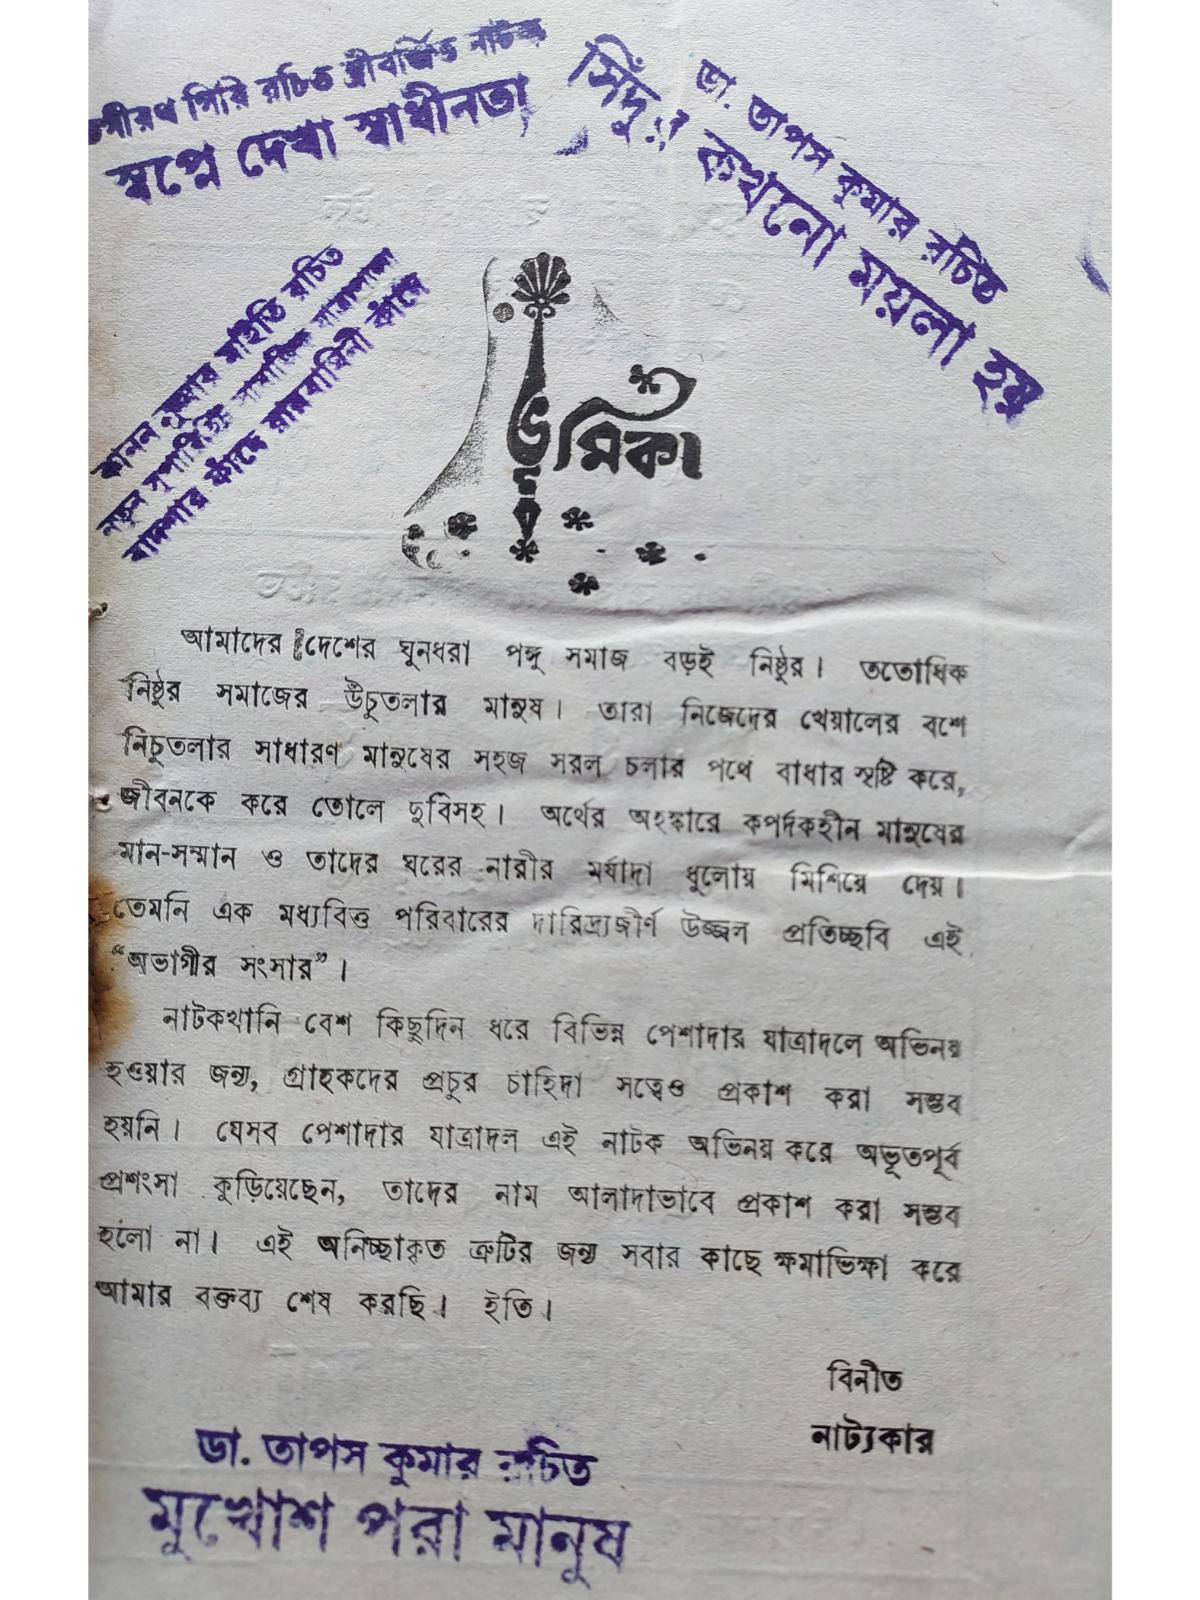 গিরি রচিত স্ত্রীবর্জিত নাটক
স্বপ্নে দেখা স্বাধীনতা
ডা. তাপস কুমার রচিত
সিঁদুর কখনো ময়লা হয়
কুমার মাইতি রচিত
নতুন যাত্রাপালা
বাদশার ফাঁদে রায়বাঘিনী কাঁদে
ভূমিকা
আমাদের দেশের ঘুনধরা পঙ্গু সমাজ বড়ই নিষ্ঠুর। ততোধিক
নিষ্ঠুর সমাজের উঁচুতলার মানুষ। তারা নিজেদের খেয়ালের বশে
নিচুতলার সাধারণ মানুষের সহজ সরল চলার পথে বাধার সৃষ্টি করে,
জীবনকে করে তোলে দুর্বিসহ। অর্থের অহঙ্কারে কপর্দকহীন মানুষের
মান-সম্মান ও তাদের ঘরের নারীর মর্যাদা ধুলোয় মিশিয়ে দেয়।
তেমনি এক মধ্যবিত্ত পরিবারের দারিদ্র্যজীর্ণ উজ্জল প্রতিচ্ছবি এই
“অভাগীর সংসার”।
নাটকখানি বেশ কিছুদিন ধরে বিভিন্ন পেশাদার যাত্রাদলে অভিনয়
হওয়ার জন্য, গ্রাহকদের প্রচুর চাহিদা সত্বেও প্রকাশ করা সম্ভব
হয়নি। যেসব পেশাদার যাত্রাদল এই নাটক অভিনয় করে অভূতপূর্ব
প্রশংসা কুড়িয়েছেন, তাদের নাম আলাদাভাবে প্রকাশ করা সম্ভব
হলো না। এই অনিচ্ছাকৃত ত্রুটির জন্য সবার কাছে ক্ষমাভিক্ষা করে
আমার বক্তব্য শেষ করছি। ইতি।
বিনীত
নাট্যকার
ডা. তাপস কুমার রচিত
মুখোশ পরা মানুষ